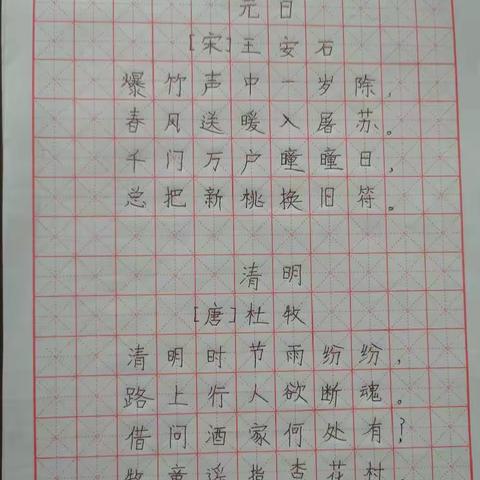 元日
[宋]王安石
爆竹声中一岁除,
春风送暖入屠苏。
千门万户瞳瞳日,
总把新桃换旧符。
清明
[唐]杜牧
清明时节雨纷纷,
路上行人欲断魂。
借问酒家何处有?
牧童遥指杏花村。